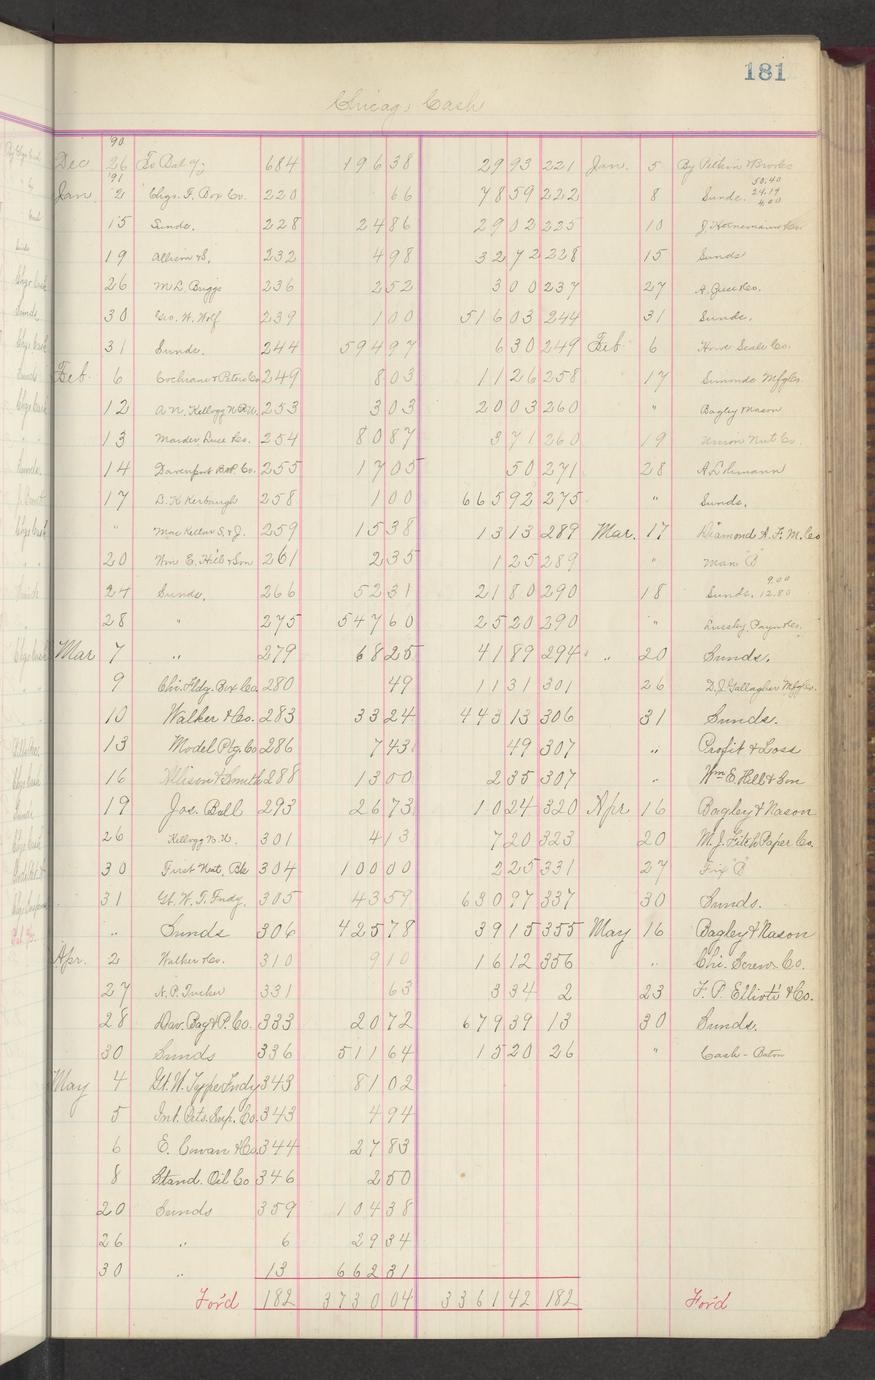 181
Chicago Cash
'90
Dec 26 To Bal 684 196 38 29 93 221 Jan. 5 By Pitkin & Brooks
'91 50.40
Jan 2 Chgo. F. Box Co. 220 66 78 59 222 8 Sunds. 24.19
4.00
15 Sunds. 228 24 86 29 02 225 10
19 Allison & S. 232 4 98 32 72 228 15 Sunds
26 M L Briggs 236 2 52 3 00 237 27
30 Geo. W. Wolf 239 1 00 516 03 244 31 Sunds.
31 Sunds. 244 594 97 6 30 249 Feb 6 Howe Scale Co.
Feb. 6 Cochrane & Peters Co 249 8 03 11 26 258 17 Simonds Mfg Co.
12 A. N. Kellogg N. P. Co. 253 3 03 20 03 260 " Bagley & Nason
13 Marder, Luse & Co. 254 80 87 3 71 260 19 Union Nut Co.
14 Davenport B & P. Co. 255 17 05 50 271 28 A. Lehmann
17 258 1 00 665 92 275 " Sunds.
" MacKellar S. & J. 259 15 38 13 13 289 Mar. 17 Diamond A. F. M. Co
20 Wm E. Hill & Son 261 2 35 1 25 289 "
9.00
27 Sunds. 266 52 31 21 80 290 18 Sunds. 12.80
28 " 275 547 60 25 20 290 "
Mar 7 " 279 68 25 41 89 294 " 20 Sunds.
9 Chi. Fldg. Box Co. 280 49 11 31 301 26 D. J. Gallagher Mfg Co.
10 Walker & Co. 283 33 24 443 13 306 31 Sunds.
13 Model Ptg. Co 286 7 43 49 307 " Profit & Loss
16 Allison & Smith 288 13 00 2 35 307 " Wm E. Hill & Son
19 Jos. Bell 293 26 73 10 24 320 Apr 16 Bagley & Nason
26 Kellogg N. U. 301 4 13 7 20 323 20 M. J. Fitch Paper Co.
30 First Nat. Bk 304 100 00 2 25 331 27
31 Gt. W. T. Fndy. 305 43 59 630 97 337 30 Sunds.
" Sunds 306 425 78 39 15 355 May 16 Bagley & Nason
Apr. 2 Walker & Co. 310 9 10 16 12 356 " Chi. Screw Co.
27 N. P. Tucker 331 63 3 34 2 23 F. P. Elliott & Co.
28 Dav. Bag & P. Co. 333 20 72 679 39 13 30 Sunds.
30 Sunds 336 511 64 15 20 26 " Cash - Baton
May 4 Gt. W. Type Fndy 343 81 02
5 Int. Pets. Sup. Co. 343 4 94
6 E. Cowan & Co. 344 27 83
8 Stand. Oil Co 346 2 50
20 Sunds 359 104 38
26 " 6 29 34
30 " 13 662 31
For'd 182 3730 04 3361 42 182 For'd